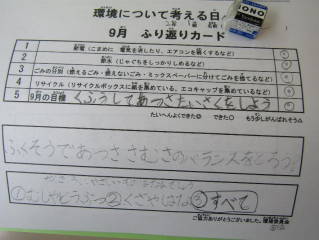 MONO
環境について考える日
9月 ふり返りカード
1 節電（こまめに 電気を消したり、エアコンを弱くするなど）
2 節水（じゃぐちをしっかりしめるなど）
3 ごみの分別（燃えるごみ・燃えないごみ・ミックスペーパーに分けてごみを捨てるなど）
4 リサイクル（リサイクルボックスに紙を集めている、エコキャップを集めているなど）
5 9月の目標 くふうしてあつさたいさくをしよう
たいへんよくできた◎ できた○ もう少しがんばろう△
ふくそうであつささむさのバランスをとろう！
①むしやどうぶつ②くさやはな③すべて
ご協力ありがとうございました。環境委員会